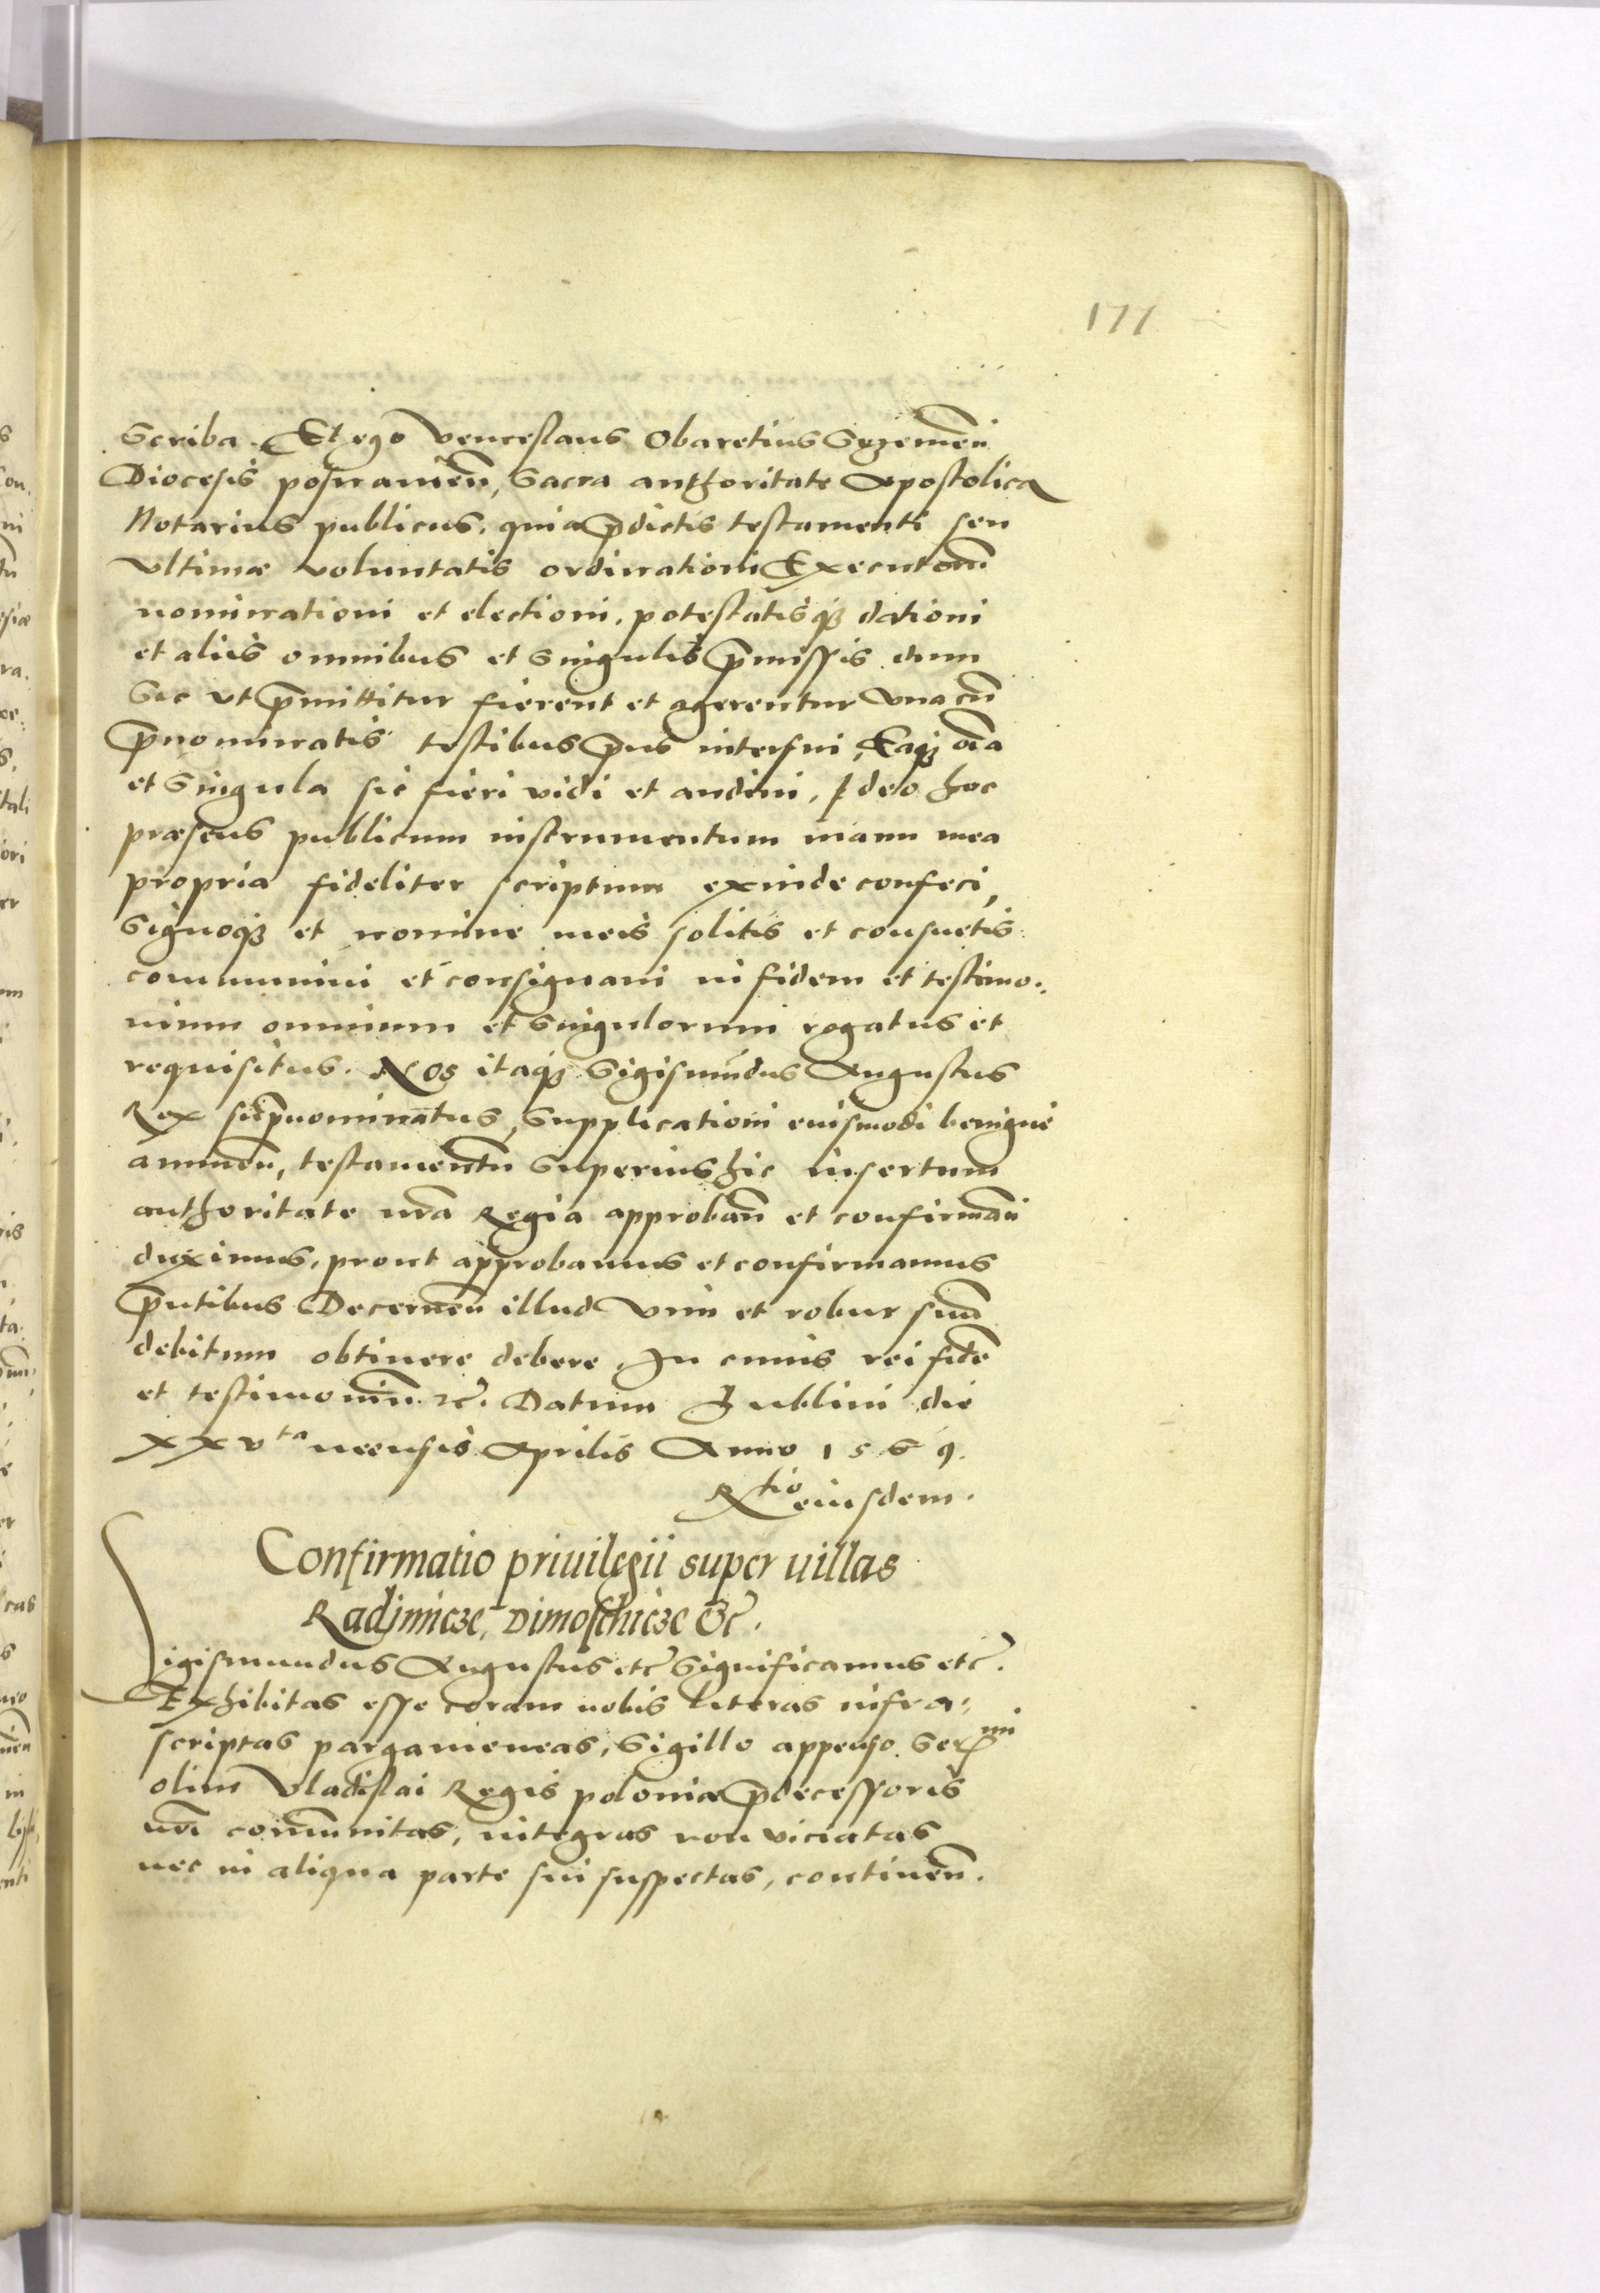 177
Scriba. Et ego Venceslaus Obaretius Srzemeñ
Diocesis posnanieñ, Sacra authoritate Apostolica
Notarius publicus, quia p̃dictis testamenti seu
Vltimæ voluntatis ordinationi Executorũ
nominationi et electioni, potestatisq₃ dationi
et aliis omnibus et Singulis p̃missis dum
Sic vt p̃mittitur fierent et agerentur vna cũ
p̃nominatis testibus p̃ns interfui, Eaq₃ oĩa
et Singula sic fieri vidi et audiui, Ideo hoc
præsens publicum instrumentum manu mea
propria fideliter scriptum exinde confeci,
Signoq₃ et nomine meis solitis et consuetis
communiui et consignaui in fidem et testimo:
nium omnium et Singulorum rogatus et
requisitus. Nos itaq₃ Sigismũdus Augustus
Rex sup̃nominatus, Supplicationi euismodi benigne
annueñ, testamentũ Superius hic insertum
authoritate nr̃a Regia approbañ et confirmañ
duximus, prout approbamus et confirmamus
p̃ntibus Decerneñ illud Vim et robur suũ
debitum obtinere debere. In cuius rei fidẽ
et testimoniũ etc̃. Datum Lublini die
XXVta mensis Aprilis Anno 1569.
Rtio eiusdem.
Confirmatio priuilegii super uillas
Radjmicze, Dimoschicze &c̃.
Sigismundus Augustus etc̃ Significamus etc̃.
Exhibitas esse coram nobis literas infra:
scriptas pargameneas, Sigillo appenso Sermi
olim Vladislai Regis poloniæ p̃decessoris
nr̃i com̃unitas, integras non viciatas
nec in aliqua parte sui suspectas, contineñ.